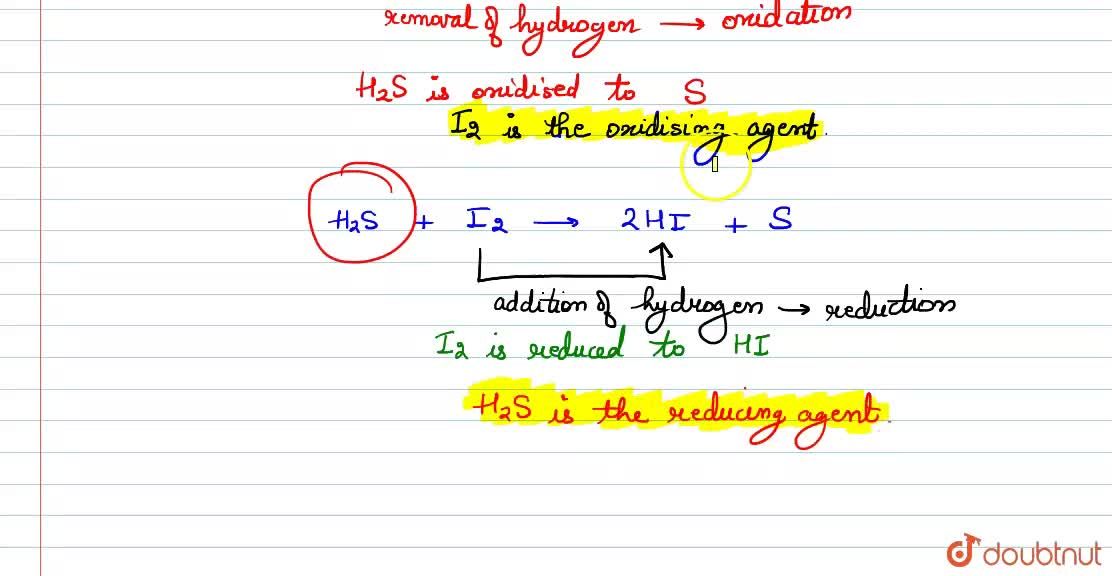 removal of hydrogen → oxidation
H2S is oxidised to S
I2 is the oxidising agent.
H2S + I2 → 2HI + S
addition of hydrogen → reduction
I2 is reduced to HI
H2S is the reducing agent.
doubtnut